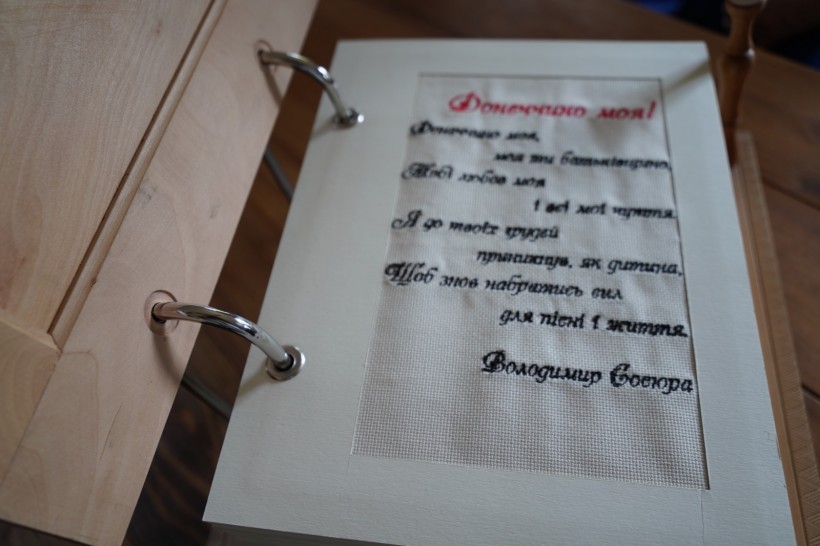 Донеччино моя!
Донеччино моя,
моя ти батьківщино,
Тобі любов моя
і всі мої чуття.
Я до твоїх грудей
приникнув, як дитина,
Щоб знов набратись сил
для пісні і життя.
Володимир Сосюра